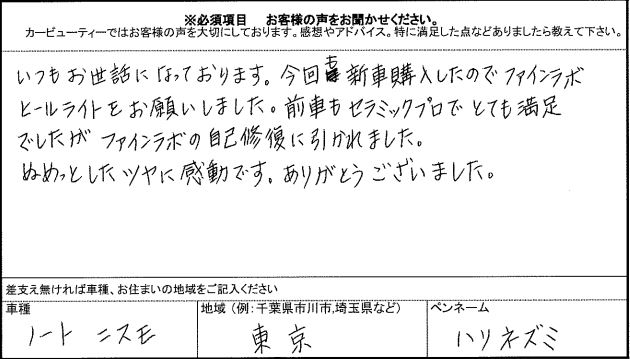 ※必須項目　お客様の声をお聞かせください。
カービューティーではお客様の声を大切にしております。感想やアドバイス。特に満足した点などありましたら教えて下さい。
いつもお世話になっております。今回も新車購入したのでファインラボ
ヒールライトをお願いしました。前車もセラミックプロでとても満足
でしたがファインラボの自己修復に引かれました。
ぬめっとしたツヤに感動です。ありがとうございました。
差支え無ければ車種、お住まいの地域をご記入ください
車種　地域（例：千葉県市川市,埼玉県など）　ペンネーム
ノート ニスモ　東京　ハリネズミ